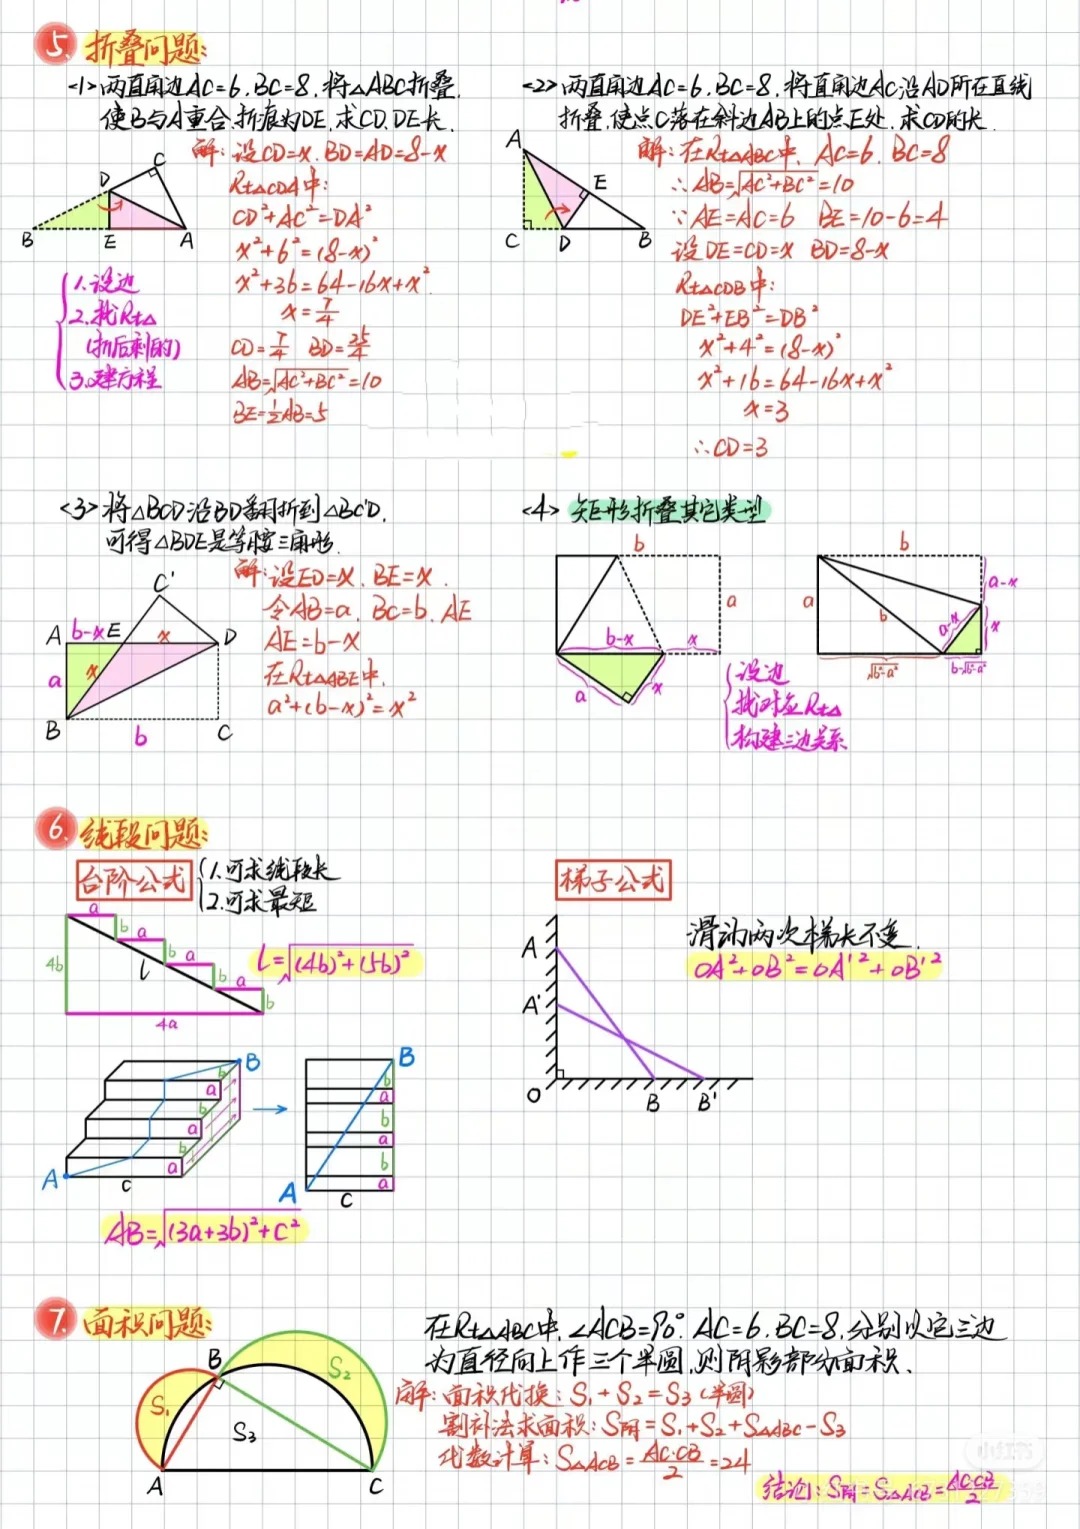 5. 折叠问题:
<1> 两直角边AC=6, BC=8, 将△ABC折叠,
使B与A重合,折痕为DE,求CD,DE长.
解: 设CD=x, BD=AD=8-x
Rt△CDA中:
CD²+AC²=DA²
x²+6²=(8-x)²
x²+36=64-16x+x²
x=7/4
CD=7/4 BD=25/4
AB=√AC²+BC²=10
BE=1/2AB=5
C
D
B
E
A
1.设边
2.找Rt△
(折后剩的)
3.建方程
<2> 两直角边AC=6, BC=8, 将直角边AC沿AD所在直线
折叠,使点C落在斜边AB上的点E处,求CD的长.
解: 在Rt△ABC中, AC=6, BC=8
∴AB=√AC²+BC²=10
∵AE=AC=6 BE=10-6=4
设DE=CD=x BD=8-x
Rt△CDB中:
DE²+EB²=DB²
x²+4²=(8-x)²
x²+16=64-16x+x²
x=3
∴CD=3
A
E
C
D
B
<3> 将△BCD沿BD翻折到△BC'D,
可得△BDE是等腰三角形.
解: 设ED=x, BE=x.
令AB=a, BC=b, AE
AE=b-x
在Rt△ABE中,
a²+(b-x)²=x²
C'
A b-x E x D
a x
B b C
<4> 矩形折叠其它类型
b
a
b-x x
a x
b
a-x
a b a-x x
√b²-a² b-√b²-a²
设边
找对应Rt△
构建三边关系
6. 线段问题:
台阶公式
1.可求线段长
2.可求最短
a
b a
4b l b a
b a
b
4a
L=√(4b)²+(5b)²
B
b
a
b
a
b
a
A
c
B
b
a
b
a
b
a
A
C
AB=√(3a+3b)²+C²
梯子公式
A
A'
O
B B'
滑动两次梯长不变.
OA²+OB²=OA'²+OB'²
7. 面积问题:
在Rt△ABC中, ∠ACB=90°. AC=6, BC=8, 分别以它三边
为直径向上作三个半圆,则阴影部分面积.
解: 面积代换: S₁+S₂=S₃(半圆)
割补法求面积: S阴=S₁+S₂+S△ABC-S₃
代数计算: S△ACB=AC·CB/2=24
结论: S阴=S△ACB=AC·CB/2
B
S₁
S₂
S₃
A
C
小红书